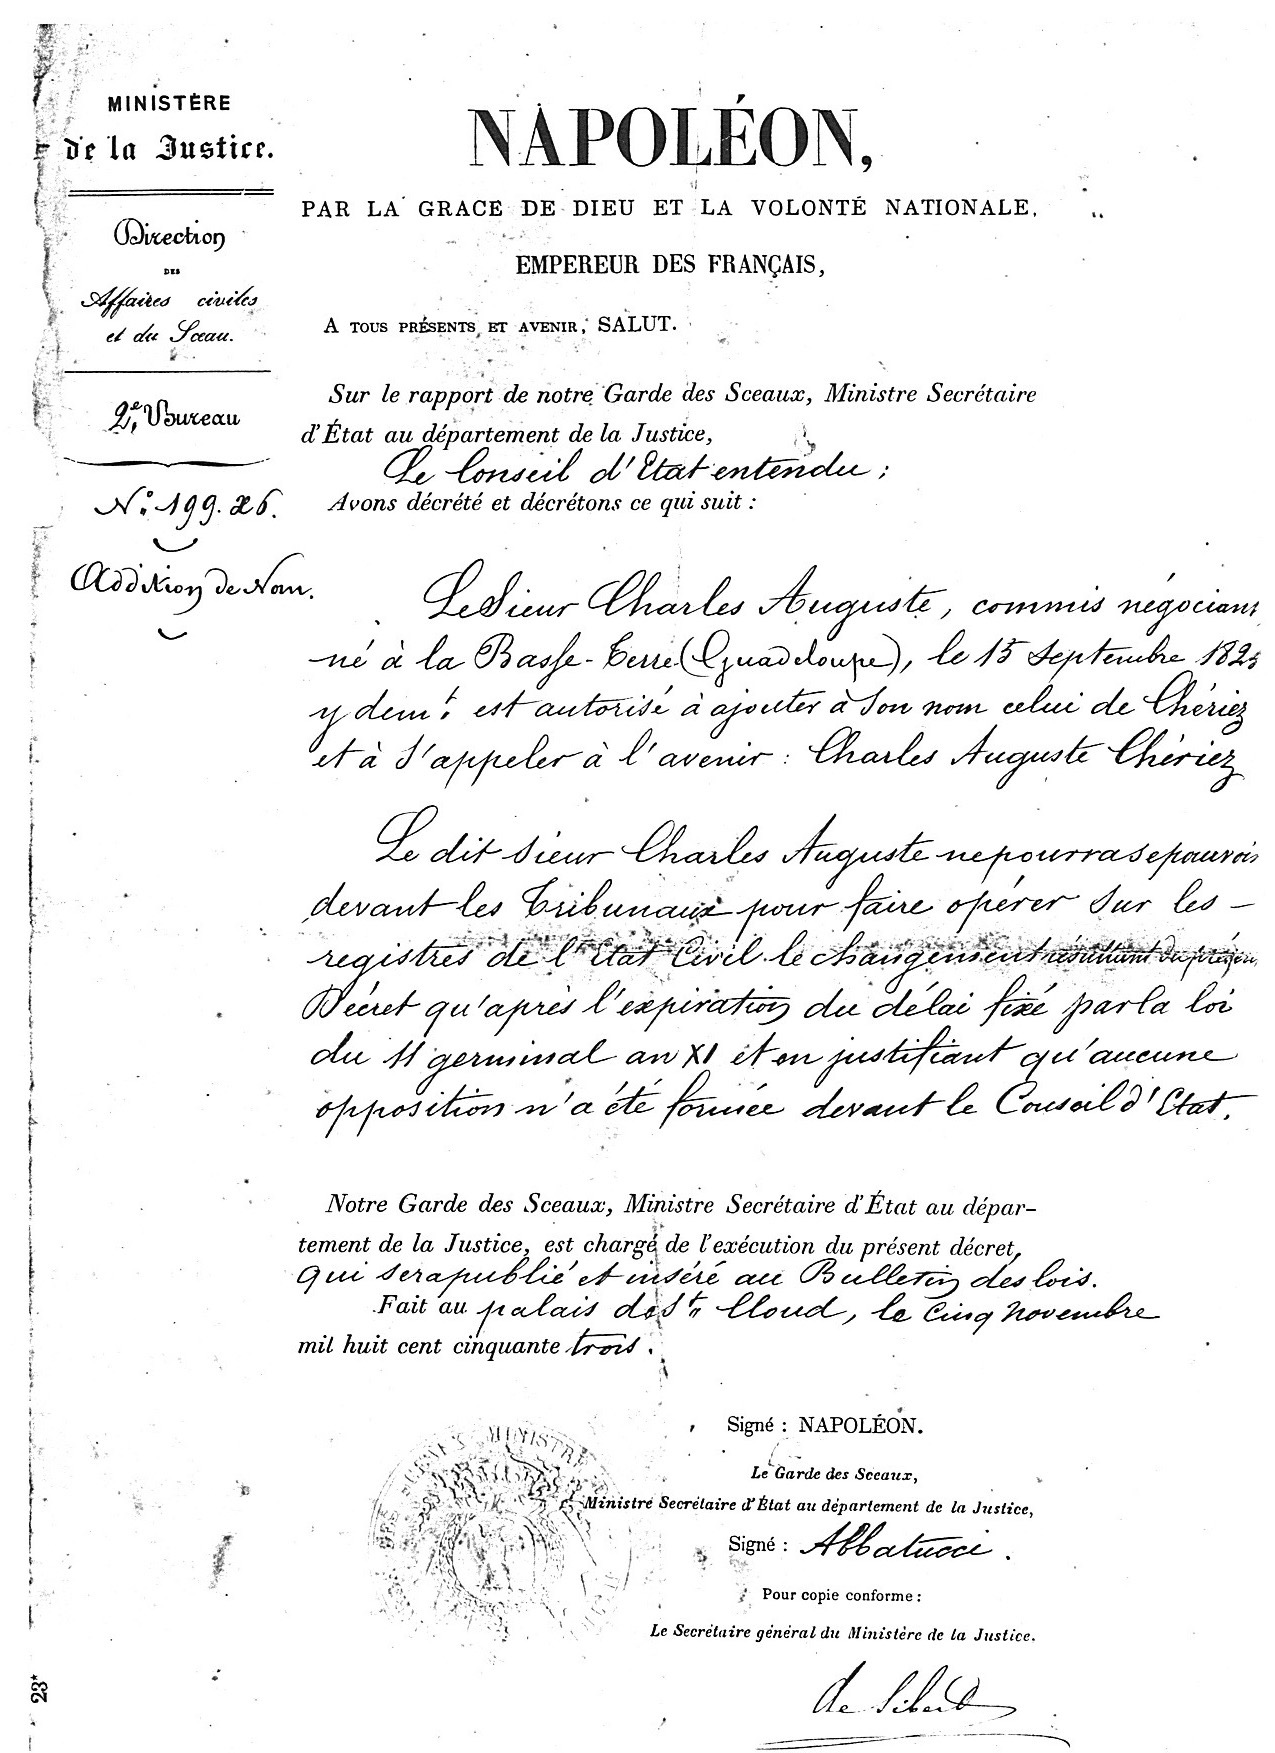 MINISTÈRE
de la Justice.
Direction
DES
Affaires civiles
et du Sceau.
2e Bureau
N° 199. X6.
Addition de Nom.
NAPOLÉON,
PAR LA GRACE DE DIEU ET LA VOLONTÉ NATIONALE,
EMPEREUR DES FRANÇAIS,
A TOUS PRÉSENTS ET AVENIR, SALUT.
Sur le rapport de notre Garde des Sceaux, Ministre Secrétaire
d'État au département de la Justice,
Le Conseil d'Etat entendu ;
Avons décrété et décrétons ce qui suit :
Le Sieur Charles Auguste, commis négociant
né à la Basse-Terre (Guadeloupe), le 15 Septembre 1825
y demt. est autorisé à ajouter à son nom celui de Chériez
et à s'appeler à l'avenir : Charles Auguste Chériez
Le dit Sieur Charles Auguste ne pourra se pourvoir
devant les Tribunaux pour faire opérer sur les –
registres de l'Etat Civil le changement résultant du présent
Décret qu'après l'expiration du délai fixé par la loi
du 11 germinal an XI et en justifiant qu'aucune
opposition n'a été formée devant le Conseil d'Etat.
Notre Garde des Sceaux, Ministre Secrétaire d'État au dépar-
tement de la Justice, est chargé de l'exécution du présent décret,
qui sera publié et inséré au Bulletin des lois.
Fait au palais de St Cloud, le cinq novembre
mil huit cent cinquante trois.
Signé : NAPOLÉON.
Le Garde des Sceaux,
Ministre Secrétaire d'État au département de la Justice,
Signé : Abbatucci.
Pour copie conforme :
Le Secrétaire général du Ministère de la Justice.
de Sibert
MINISTRE
23*